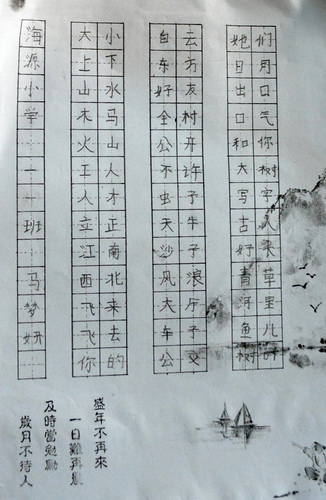 海源小学一一班马梦妍
大小
上下
山水
木马
火山
工人
人才
立正
江南
西北
飞来
飞去
你的
白云
东方
好友
全村
公开
不许
虫子
天牛
沙子
风浪
大厅
车子
她们
日用
出口
口气
和你
大树
写字
古人
好来
青草
河里
鱼儿
盛年不再來
一日難再晨
及時當勉勵
歲月不待人